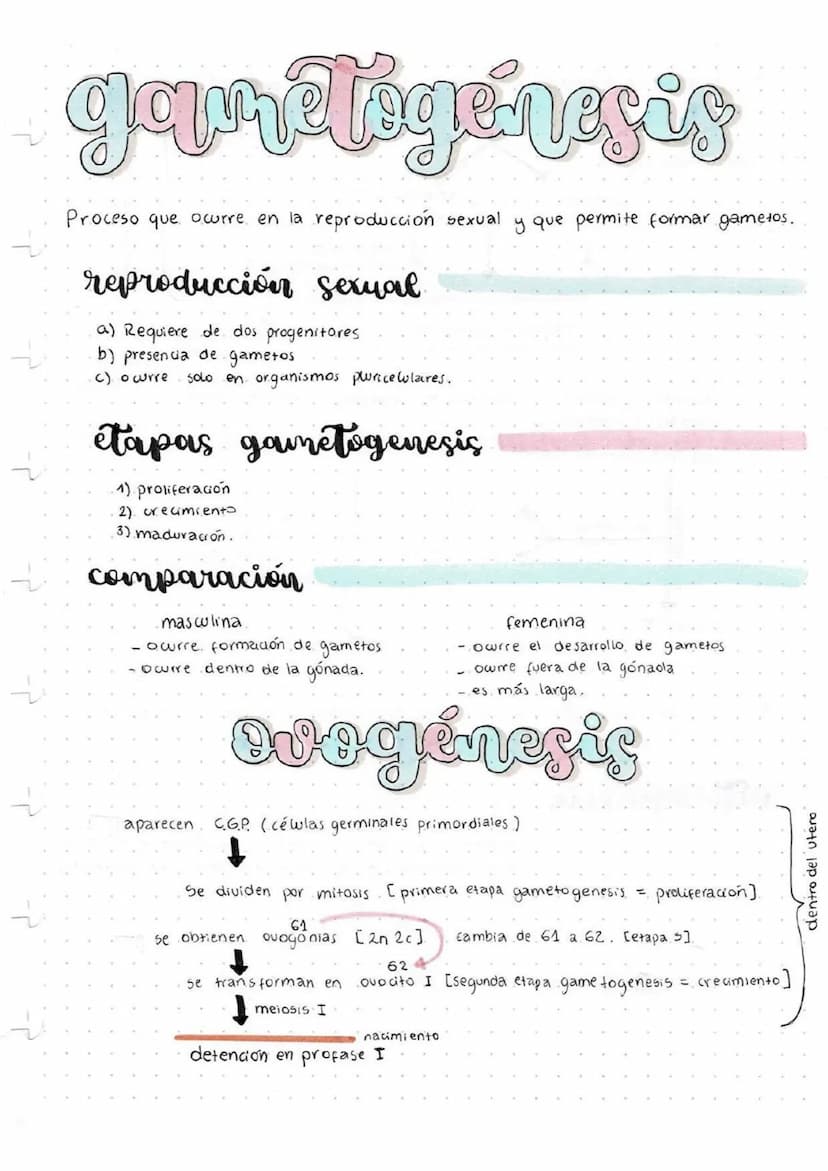 gametogénesis
Proceso que ocurre en la reproducción sexual y que permite formar gametos.
reproducción sexual
a) Requiere de dos progenitores
b) presencia de gametos
c) ocurre solo en organismos pluricelulares.
etapas gametogenesis
1) proliferación
2) crecimiento
3) maduración.
comparación
masculina
- ocurre formación de gametos
- ocurre dentro de la gónada.
femenina
- ocurre el desarrollo de gametos
- ocurre fuera de la gónada
- es más larga.
ovogénesis
aparecen C.G.P. (células germinales primordiales)
se dividen por mitosis [primera etapa gametogenesis = proliferación]
G1
se obtienen ovogonias [2n 2c] cambia de G1 a G2. [etapa S]
G2
se transforman en ovocito I [segunda etapa gametogenesis = crecimiento]
meiosis I
nacimiento
detención en profase I
dentro del utero